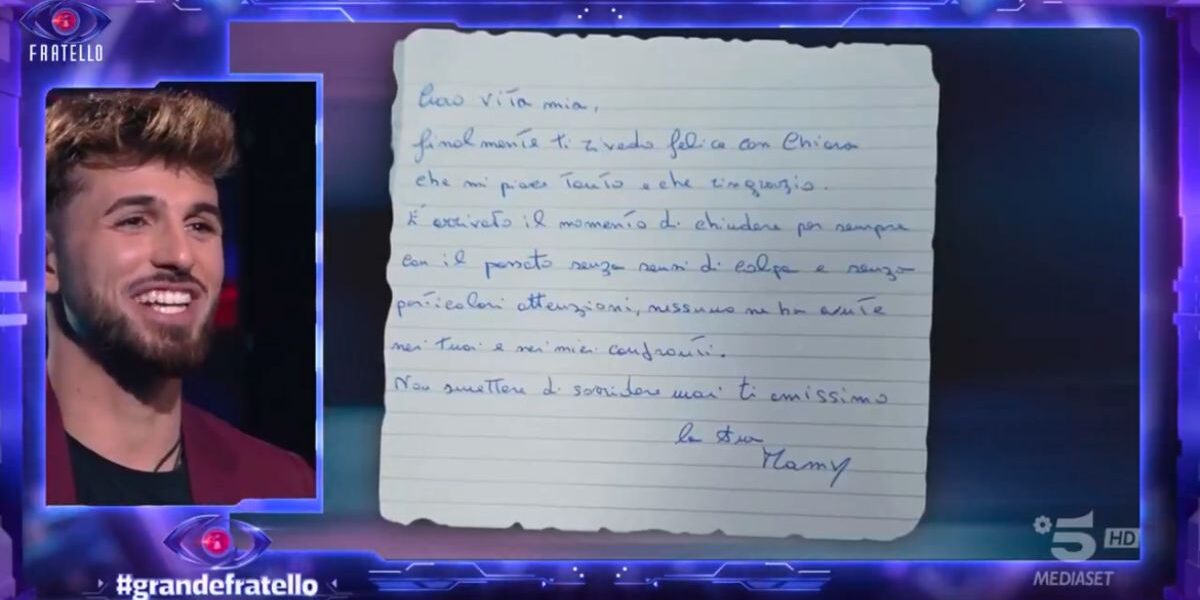 FRATELLO
Ciao vita mia,
finalmente ti rivedo felice con Chiara
che mi piace tanto e che ringrazio.
È arrivato il momento di chiudere per sempre
con il passato senza sensi di colpa e senza
particolari attenzioni, nessuno ne ha avute
nei tuoi e nei miei confronti.
Non smettere di sorridere mai ti amissimo
la tua
Mamy
#grandefratello
5 HD
MEDIASET